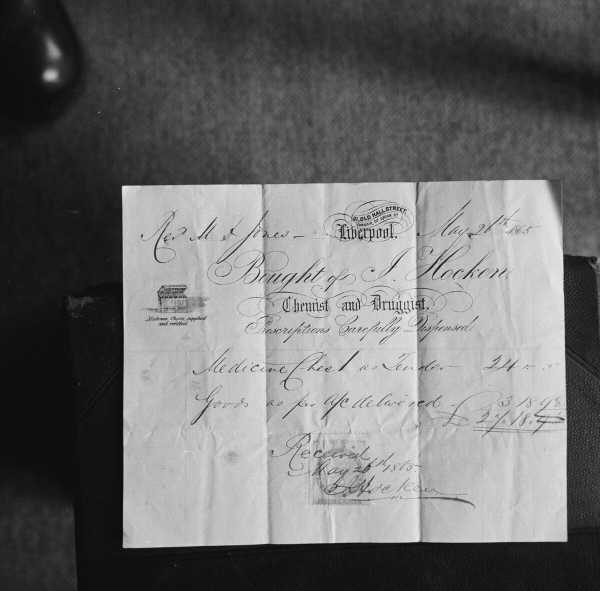 OLD HALL STREET,
Liverpool. May 26th 1865
Revd M D Jones —
Bought of J. Hocken,
Chemist and Druggist.
Prescriptions Carefully Dispensed.
Medicine Chests supplied
and refitted
Medicine Chest as Tender — 24
Goods as per a/c delivered — 3.18.9
£ 27.18.9
Received
May 26th 1865
J Hocken